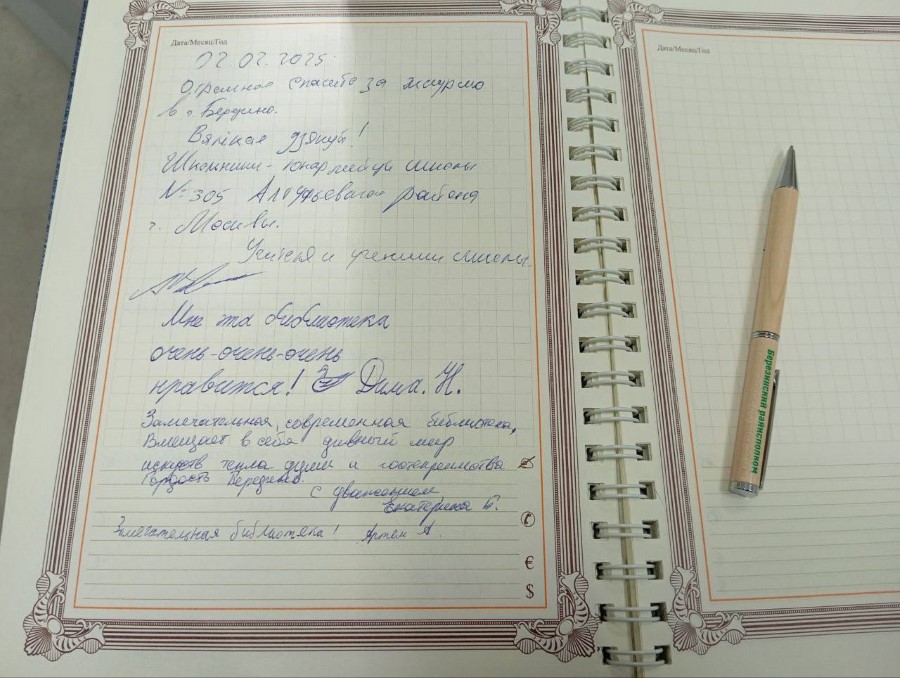 Дата/Месяц/Год
12.02.2025
Огромное спасибо за
в г. Березино.
Вялікая дзякуй!
Школьники- юнармейцы школы
№ 305 Алтуфьевского района
г. Москвы.
Учителя и ученики школы.
Мне эта библиотека
очень-очень-очень
нравится! Дима. Н.
Замечательная, современная библиотека,
Вмещает в себя дивный мир
искусств тепла души и гостеприимства
Гордость Березино.
С уважением
Екатерина Б.
Замечательная библиотека! Артем А.
€
$
Дата/Месяц/Год
Березинский райисполком